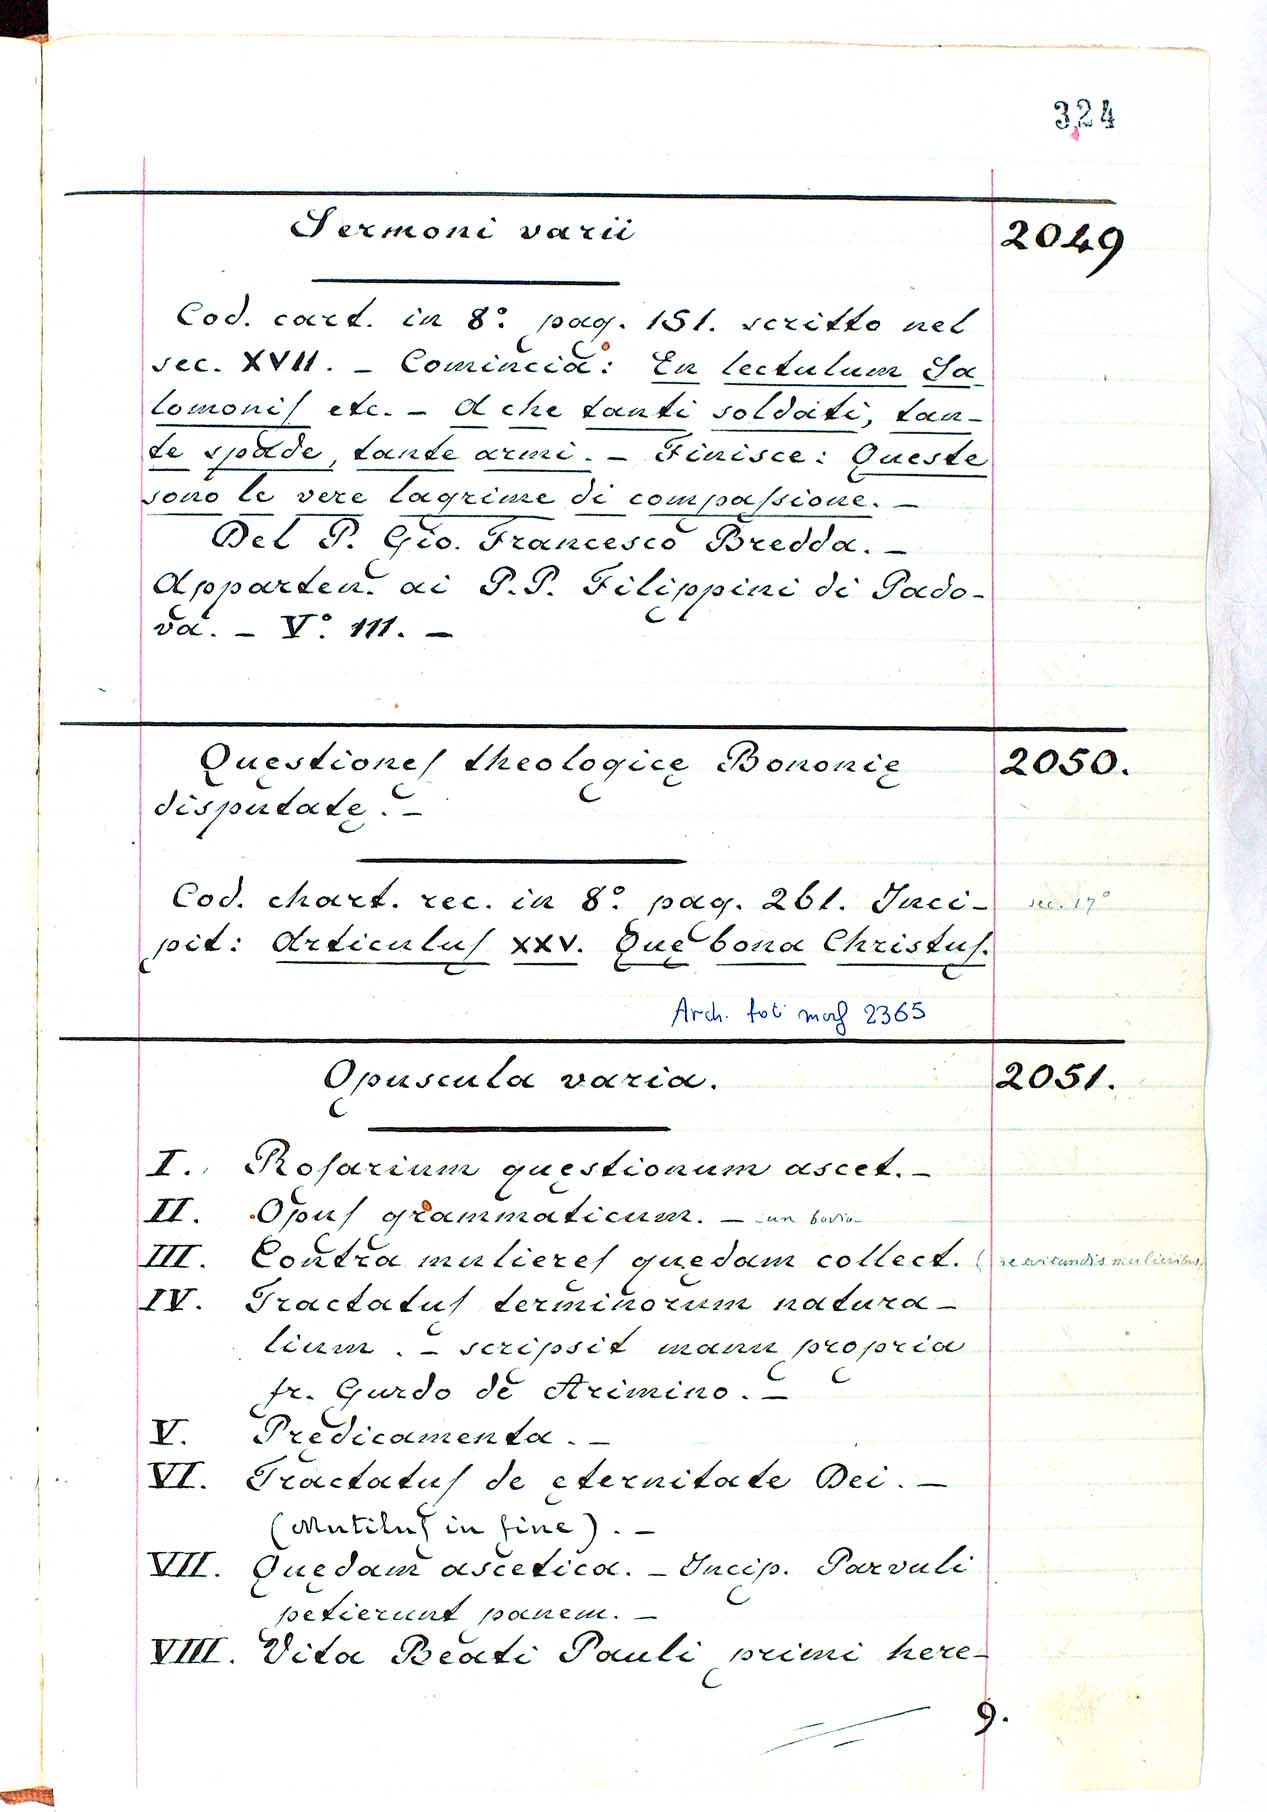 324
Sermoni varii
2049
Cod. cart. in 8º. pag. 151. scritto nel
sec. XVII. – Comincia: En lectulum Sa-
lomoniſ etc. – A che tanti soldati, tan-
te spade, tante armi. – Finisce: Queste
sono le vere lagrime di compaſsione. –
Del P. Gio. Francesco Bredda. –
Apparten. ai P.P. Filippini di Pado-
va. – Vº. 111. –
Quęstioneſ theologicę Bononię
2050.
disputatę. –
Cod. chart. rec. in 8º. pag. 261. Inci-
sec. 17º
pit: Articuluſ XXV. Quę bona Christuſ.
Arch. fot. morf 2365
Opuscula varia.
2051.
I. Roſarium quęstionum ascet. –
II. Opuſ grammaticum. –
III. Contra muliereſ quędam collect. (de evitandis mulieribus
IV. Tractatuſ terminorum natura-
lium. – scripsit manu propria
fr. Gurdo de Arimino. –
V. Prędicamenta. –
VI. Tractatuſ de ęternitate Dei. –
(Mutiluſ in fine). –
VII. Quędam ascetica. – Incip. Parvuli
petierunt panem. –
VIII. Vita Beati Pauli primi here-
9.